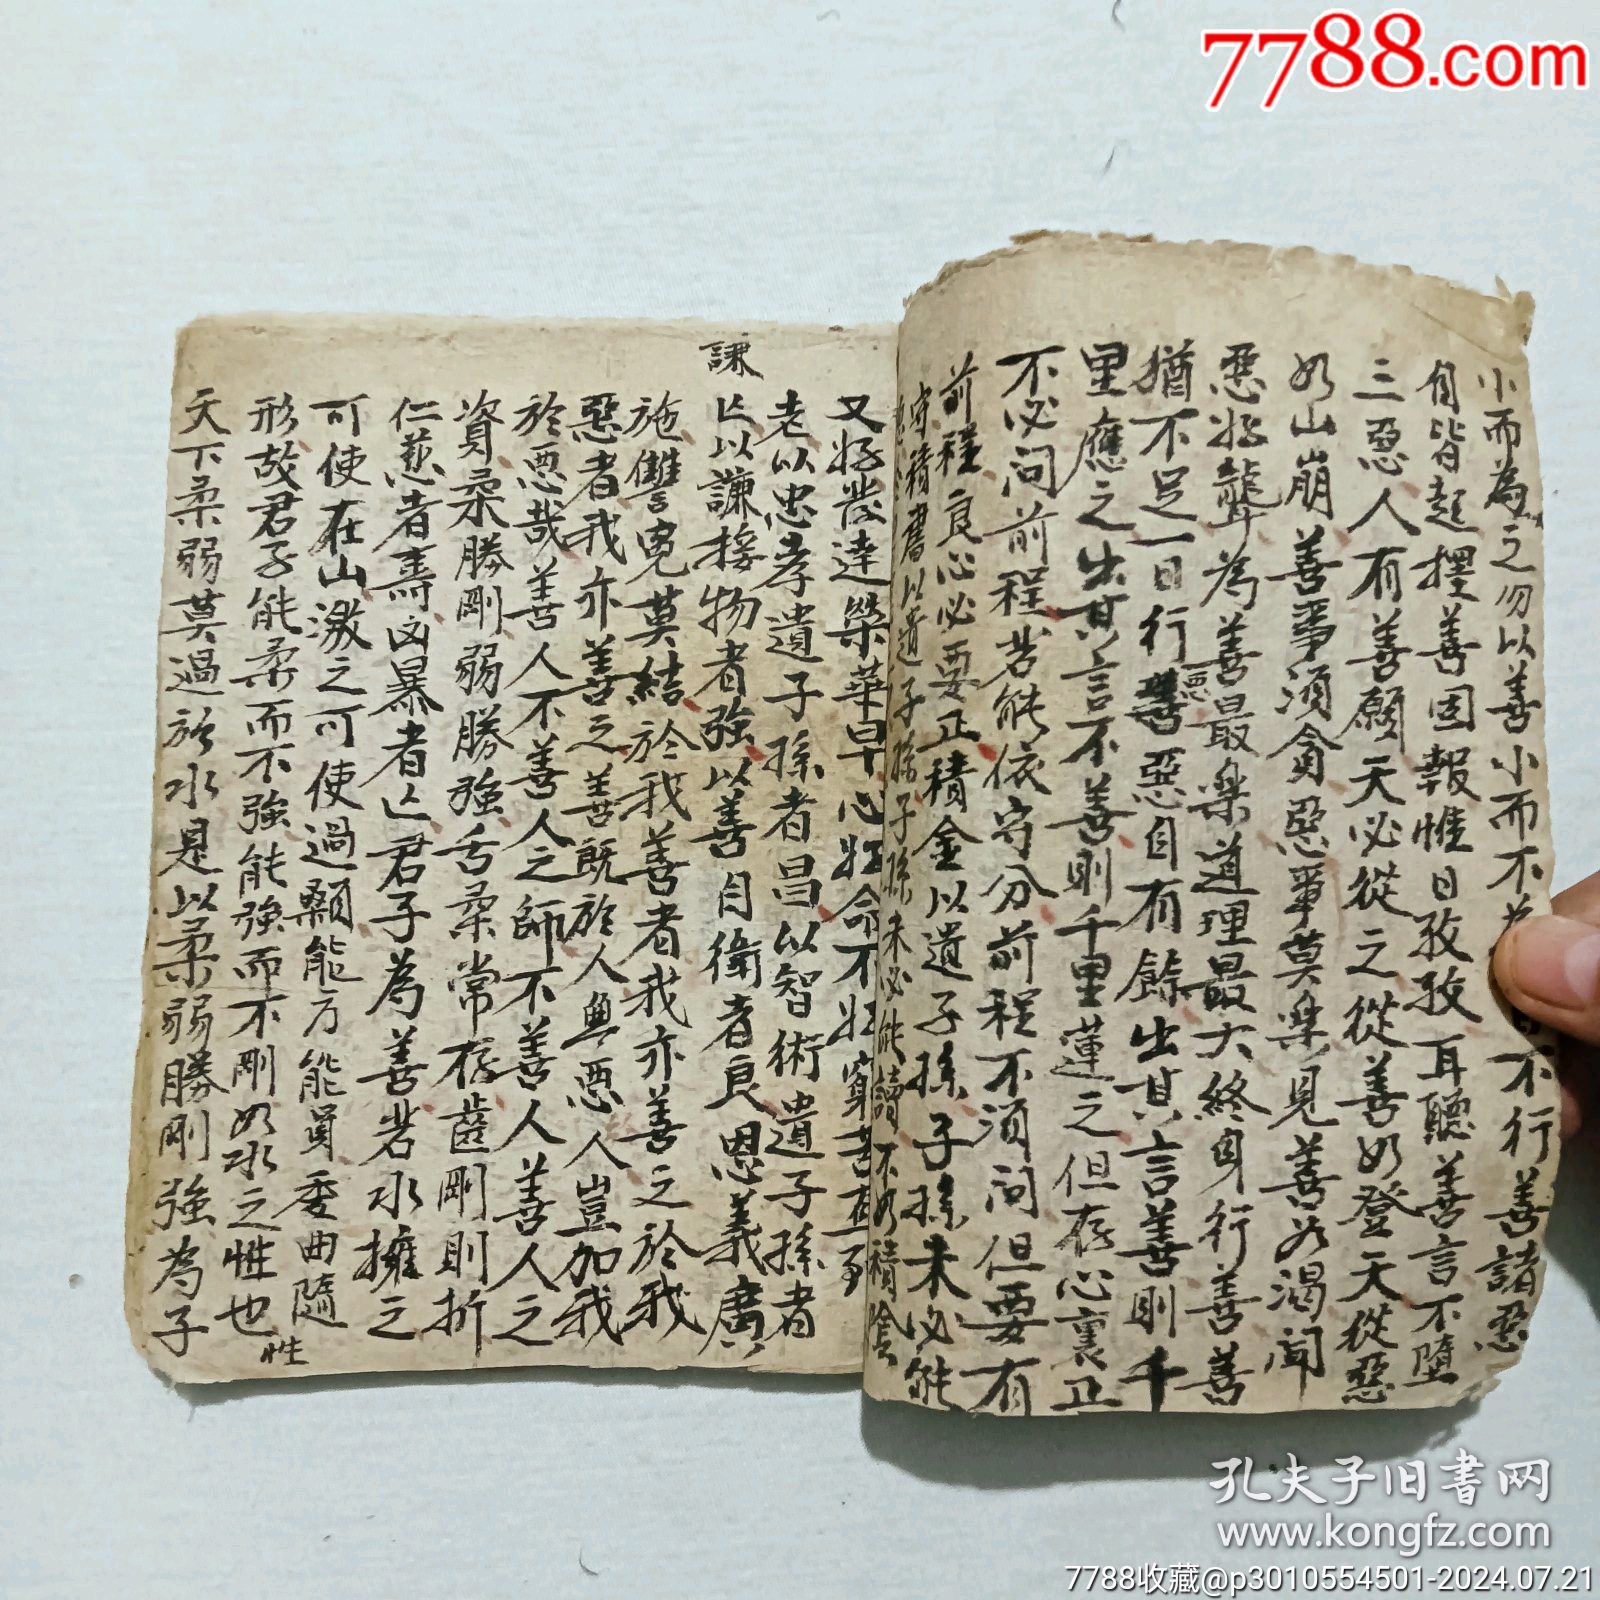 7788.com
小而為之勿以善小而不為
不行善諸惡
自皆起擇善固報惟日孜孜耳聽善言不墮
三惡人有善願天必從之從善如登天從惡
如山崩善事須貪惡事莫樂見善如渴聞
惡如聾為善最樂道理最大終身行善善
猶不足一日行惡惡自有餘出其言善則千
里應之出其言不善則千里違之但存心裏正
不必問前程若能依守分前程不須問但要有
前程良心必要正積金以遺子孫子孫未必能
守積書以遺子孫子孫未必能讀不如積陰
又好發達榮華早心好命不好窮苦直到
老以忠孝遺子孫者昌以智術遺子孫者
謙
亡以謙接物者強以善自衛者良恩義廣
施讐冤莫結於我善者我亦善之於我
惡者我亦善之善既於人無惡人豈加我
於惡哉善人不善人之師不善人善人之
資柔勝剛弱勝強舌柔常存齒剛則折
仁慈者壽凶暴者亡君子為善若水擁之
可使在山激之可使過顙能方能圓委曲隨
性
形故君子能柔而不強能強而不剛如水之性也
天下柔弱莫過於水是以柔弱勝剛強為子
孔夫子旧书网
www.kongfz.com
7788收藏@p3010554501-2024.07.21